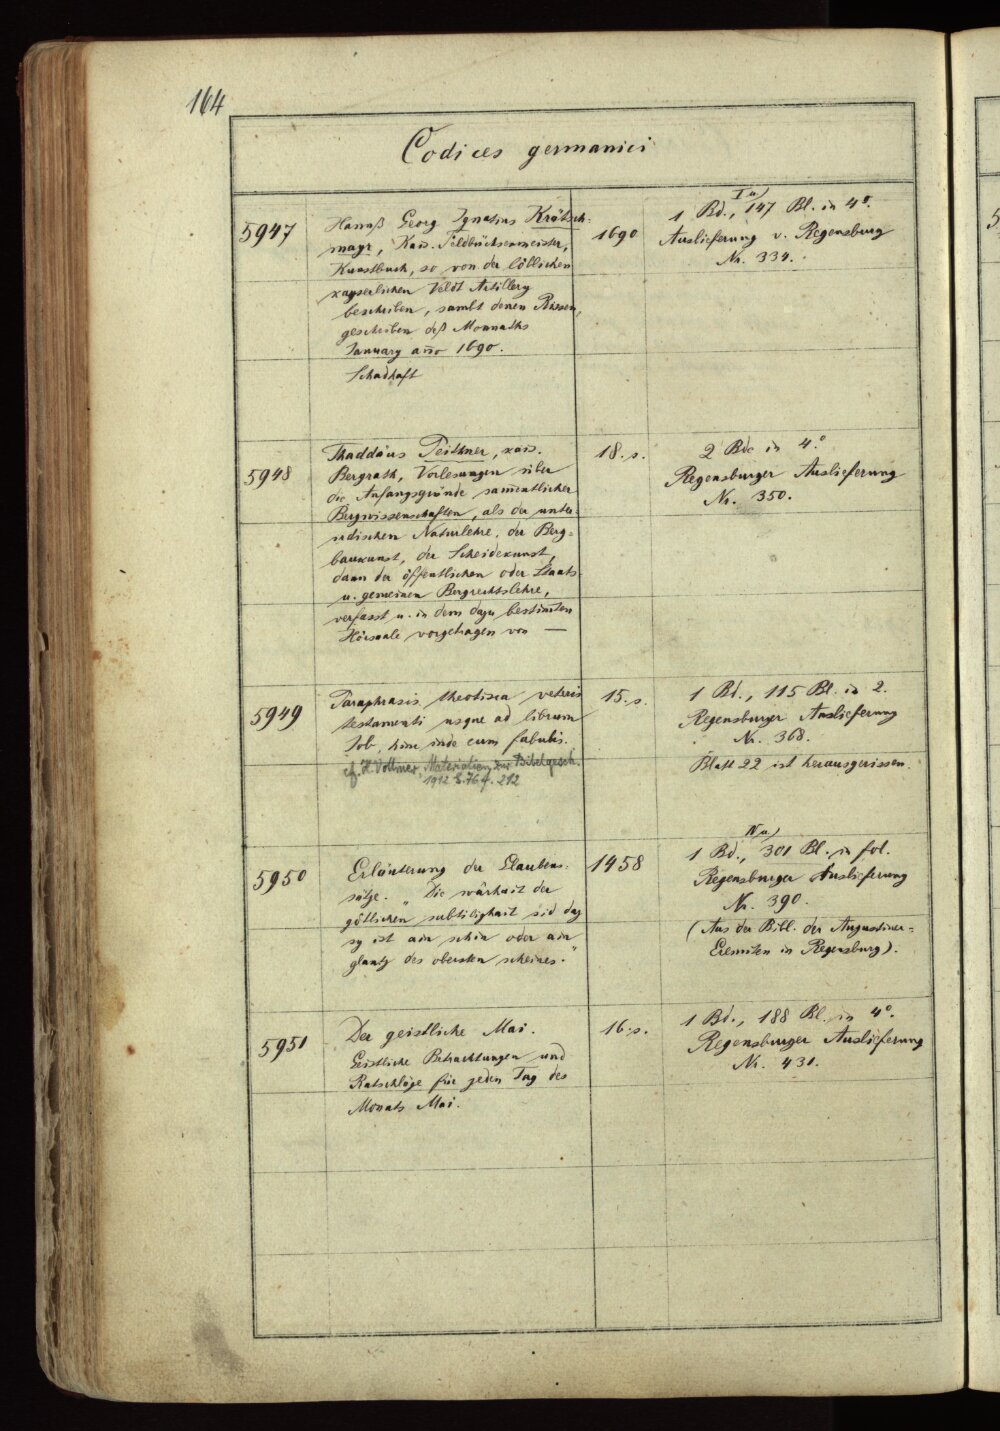 164
Codices germanici
5947
Hannß Georg Ignatius Krätsch-
mayr, Kais. Feldbüchsenmeister,
Kunstbuch, so von der löblichen
kayserlichen Veldt Artillery
beschriben, sambt denen Rissen,
geschriben deß Monnaths
January anno 1690.
Schadhaft
1690
I u.)
1 Bd., 147 Bl. in 4°.
Auslieferung v. Regensburg
Nr. 334.
5948
Thaddäus Peithner, kais.
Bergrath, Vorlesungen über
die Anfangsgründe sam̄entlicher
Bergwissenschaften, als der unter-
irdischen Naturlehre, der Berg-
baukunst, der Scheidekunst,
dann der öffentlichen oder Staats
u. gemeinen Bergrechtslehre,
verfasst u. in dem dazu bestim̄ten
Hörsaale vorgetragen von —
18. s.
2 Bde in 4°
Regensburger Auslieferung
Nr. 350.
5949
Paraphrasis theotisca veteris
testamenti usque ad librum
Job, hinc inde cum fabulis.
cf. H. Vollmer, Materialien zur Bibelgesch.
1912 S. 76 f. 212
15. s.
1 Bd., 115 Bl. in 2.
Regensburger Auslieferung
Nr. 368.
Blatt 22 ist herausgerissen.
5950
Erläuterung der Glaubens-
sätze. „Die wärhait der
götlichen subtilighait sid daz
sy ist ain schin oder ain
glantz des obersten scheines."
1458
IV u.)
1 Bd., 301 Bl. in fol.
Regensburger Auslieferung
Nr. 390.
(Aus der Bibl. der Augustiner-
Eremiten in Regensburg).
5951
Der geistliche Mai.
Geistliche Betrachtungen und
Ratschläge für jeden Tag des
Monats Mai.
16. s.
1 Bd., 188 Bl. in 4°.
Regensburger Auslieferung
Nr. 431.